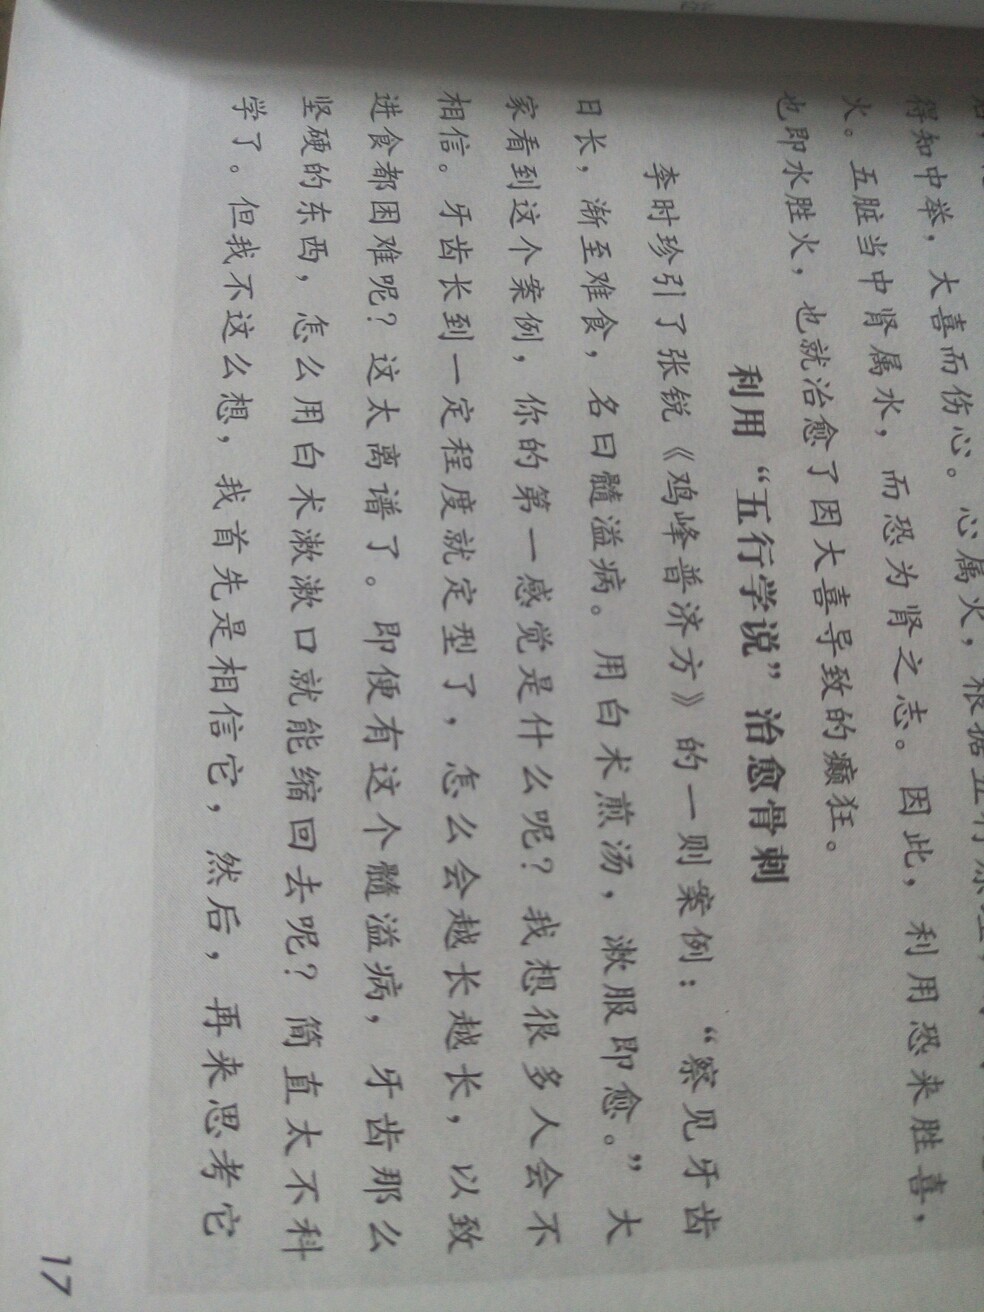 得知中举，大喜而伤心。心属火，根据五行
火。五脏当中肾属水，而恐为肾之志。因此，利用恐来胜喜，
也即水胜火，也就治愈了因大喜导致的癫狂。
利用“五行学说”治愈骨刺
李时珍引了张锐《鸡峰普济方》的一则案例：“察见牙齿
日长，渐至难食，名曰髓溢病。用白术煎汤，漱服即愈。”大
家看到这个案例，你的第一感觉是什么呢？我想很多人会不
相信。牙齿长到一定程度就定型了，怎么会越长越长，以致
进食都困难呢？这太离谱了。即便有这个髓溢病，牙齿那么
坚硬的东西，怎么用白术漱漱口就能缩回去呢？简直太不科
学了。但我不这么想，我首先是相信它，然后，再来思考它
17